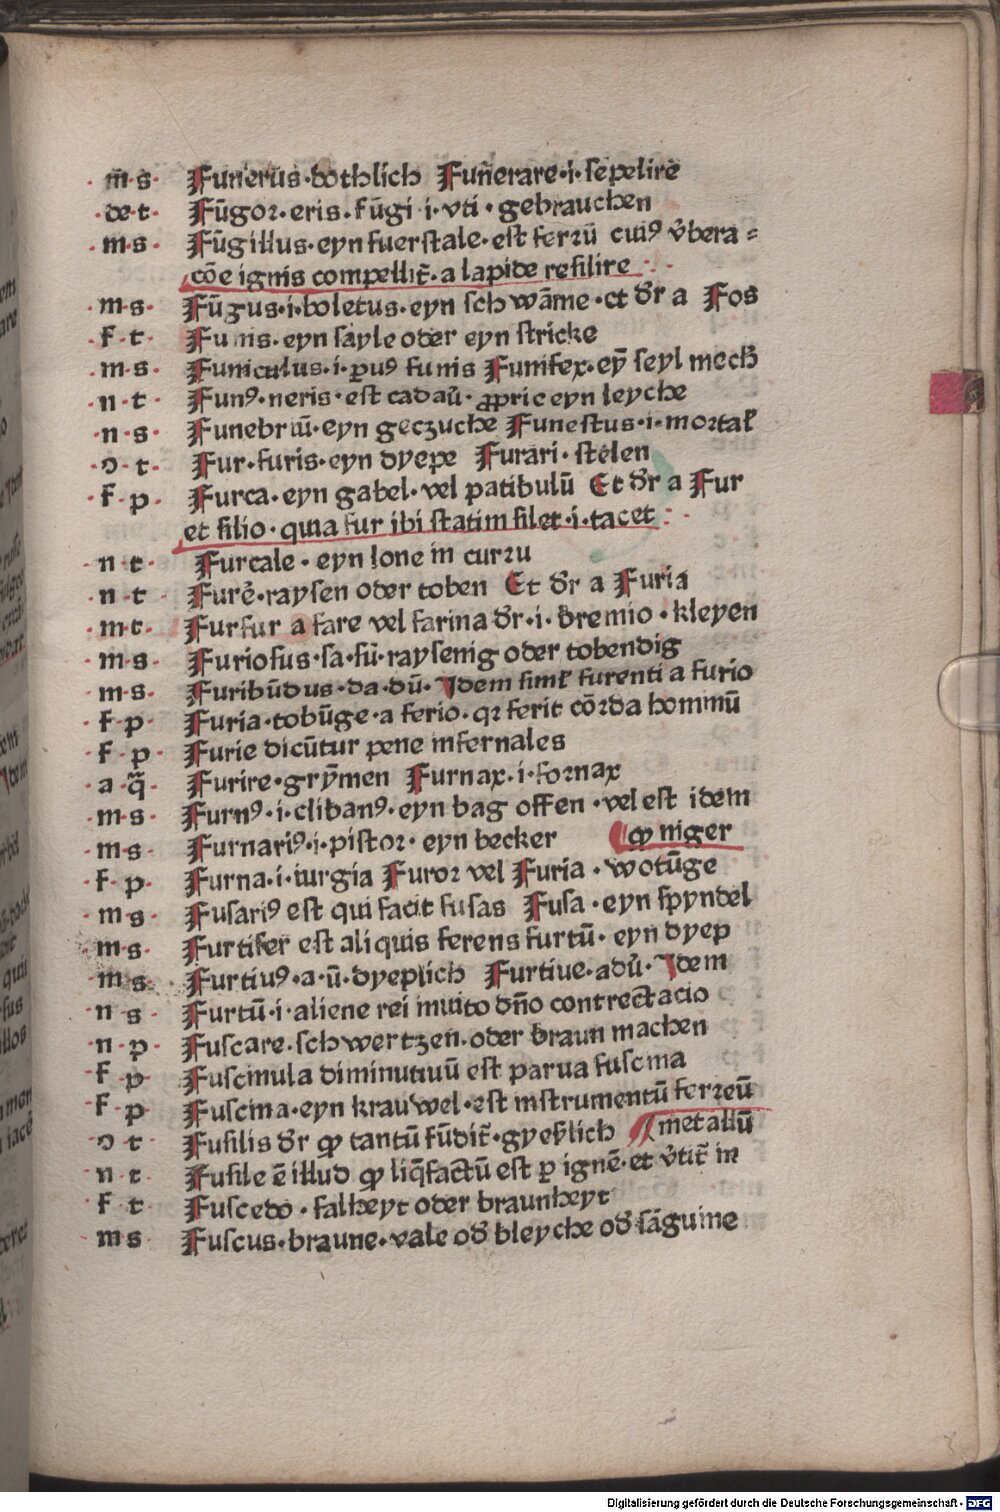 m̄·s· Funerūs·dothlich Fun̄erare·i·sepelire
de·t· Fūgor·eris·fūgi·i·vti·gebrauchen
m·s· Fūgillus·eyn fuerstale·est ferrū cuiꝰ v̾bera⸗
cōe ignis compellit̄·a lapide resilire
m·s· Fūgus·i·boletus·eyn schwāme·et dr̄ a Fos
f·t· Funis·eyn sayle oder eyn stricke
m·s· Funiculus·i·ꝑuꝰ funis Funifex·eȳ seyl mech̄
n t· Funꝰ·neris·est cadaū·ꝓpric eyn leyche
n·s· Funebriū·eyn geczuche Funestus·i·mortal̄
ɔ·t· Fur·furis·eyn dyepe Furari·stelen
f·p· Furca·eyn gabel·vel patibulū Et dr̄ a Fur
et silio·quia fur ibi statim silet·i·tacet
n t· Furcale·eyn lone in curru
n t· Furē·raysen oder toben Et dr̄ a Furia
m·t· Furfur a fare vel farina dr̄·i·bremio·kleyen
m·s· Furiosus·sa·fū·raysenig oder tobendig
m·s· Furibūdus·da·dū·Idem simil̄ furenti a furio
f·p· Furia·tobūge·a ferio·qꝛ ferit cōrda hominū
f·p· Furie dicūtur pene infernales
a·q̄· Furire·grȳmen Furnax·i·fornax
m·s· Furnꝰ·i·clibanꝰ·eyn bag offen·vel est idem
m·s· Furnariꝰ·i·pistor·eyn becker ꝙ niger
f·p· Furna·i·iurgia Furor vel Furia·wotūge
m·s· Fusariꝰ est qui facit fusas Fusa·eyn spyndel
m·s· Furtifer est aliquis ferens furtū·eyn dyep
m s· Furtiuꝰ·a·ū·dyeplich Furtiue·adū·Idem
n s· Furtū·i·aliene rei inuito dn̄o contrectacio
n·p· Fuscare·schwertzen·oder braun machen
f p Fuscinula diminutiuū est parua fuscina
f·p Fuscina·eyn krauwel·est instrumentū ferreū
ɔ t Fusilis dr̄ ꝙ tantū fūdit̄·gyeßlich metallū
n t· Fusile ē illud ꝙ liq̄factū est ꝑ ignē·et v̾tit̄ in
f t· Fuscedo·falheyt oder braunheyt
m s· Fuscus·braune·vale od̄ bleyche od̄ sāguine
Digitalisierung gefördert durch die Deutsche Forschungsgemeinschaft - DFG